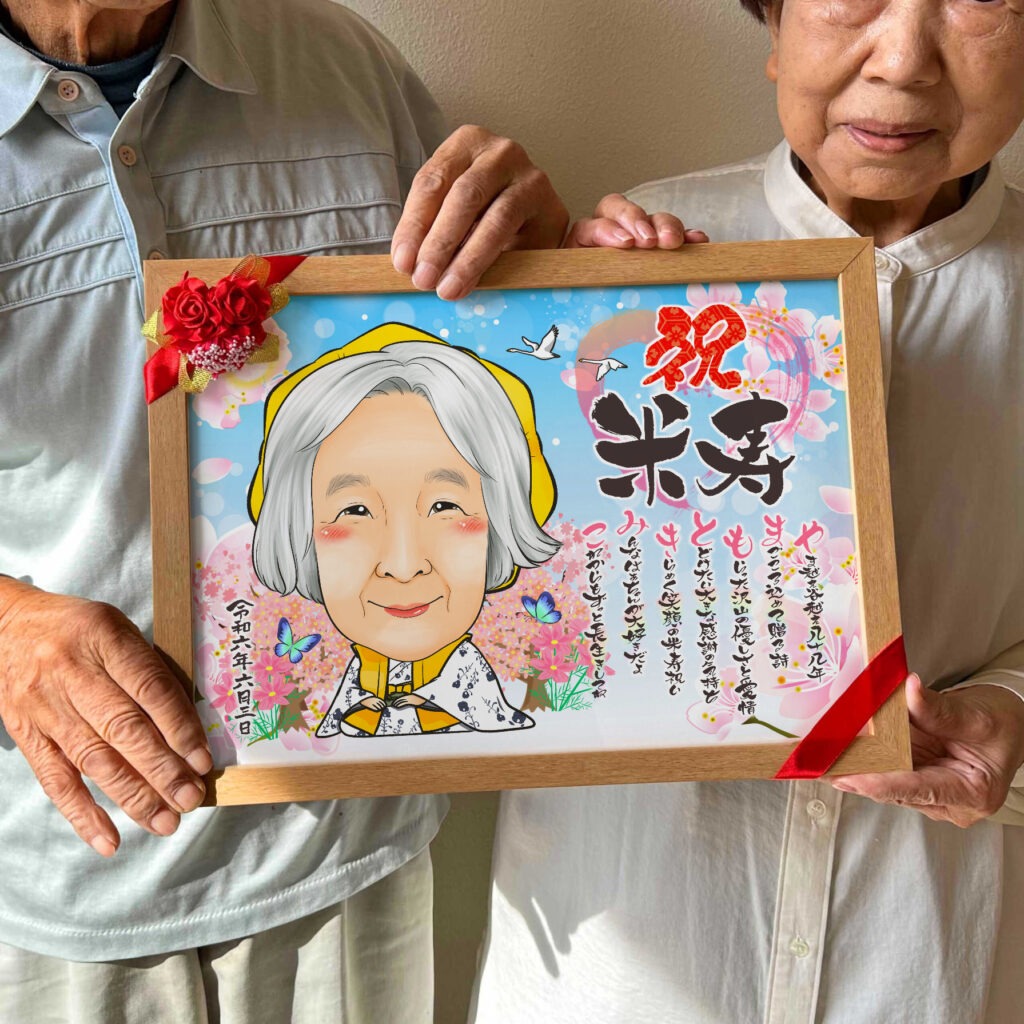 祝
米寿
やま越え谷越え八十八年
まごころ込めて贈る詩
もじに沢山の優しさと愛情
とどけたい大きな感謝の気持ち
きらめく笑顔の米寿祝い
みんなばあちゃんが大好きだよ
これからもずっと長生きしてね
令和六年六月三日